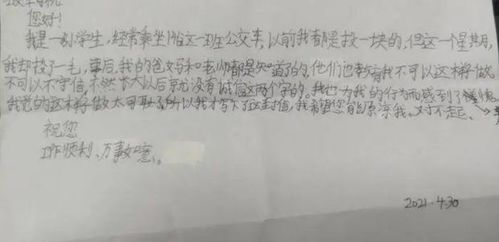 您好!
我是一名学生,经常乘坐您这一班公交车,以前我都是投一块的,但这一个星其月,
我却投了一毛,事后,我的爸妈和老师都是知道了的,他们也教育我不可以这样做
不可以不守信,不然长大以后就没有诚信这两个字的。我也为我的行为而感到了
我觉的这样做太可耻了所以我才写下这封信,我希望您能原谅我、对不起、
祝您
工作顺利、万事如意。
2021.4.30